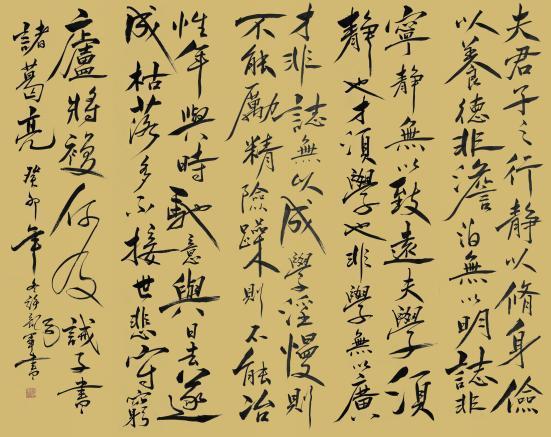 夫君子之行静以脩身儉
以養德非澹泊無以明誌非
寧静無以致遠夫學須
静也才須學也非學無以廣
才非誌無以成學淫慢則
不能勵精險躁則不能冶
性年與時馳意與日去遂
成枯落多不接世悲守窮
廬將複何及誡子書
諸葛亮癸卯年冬書